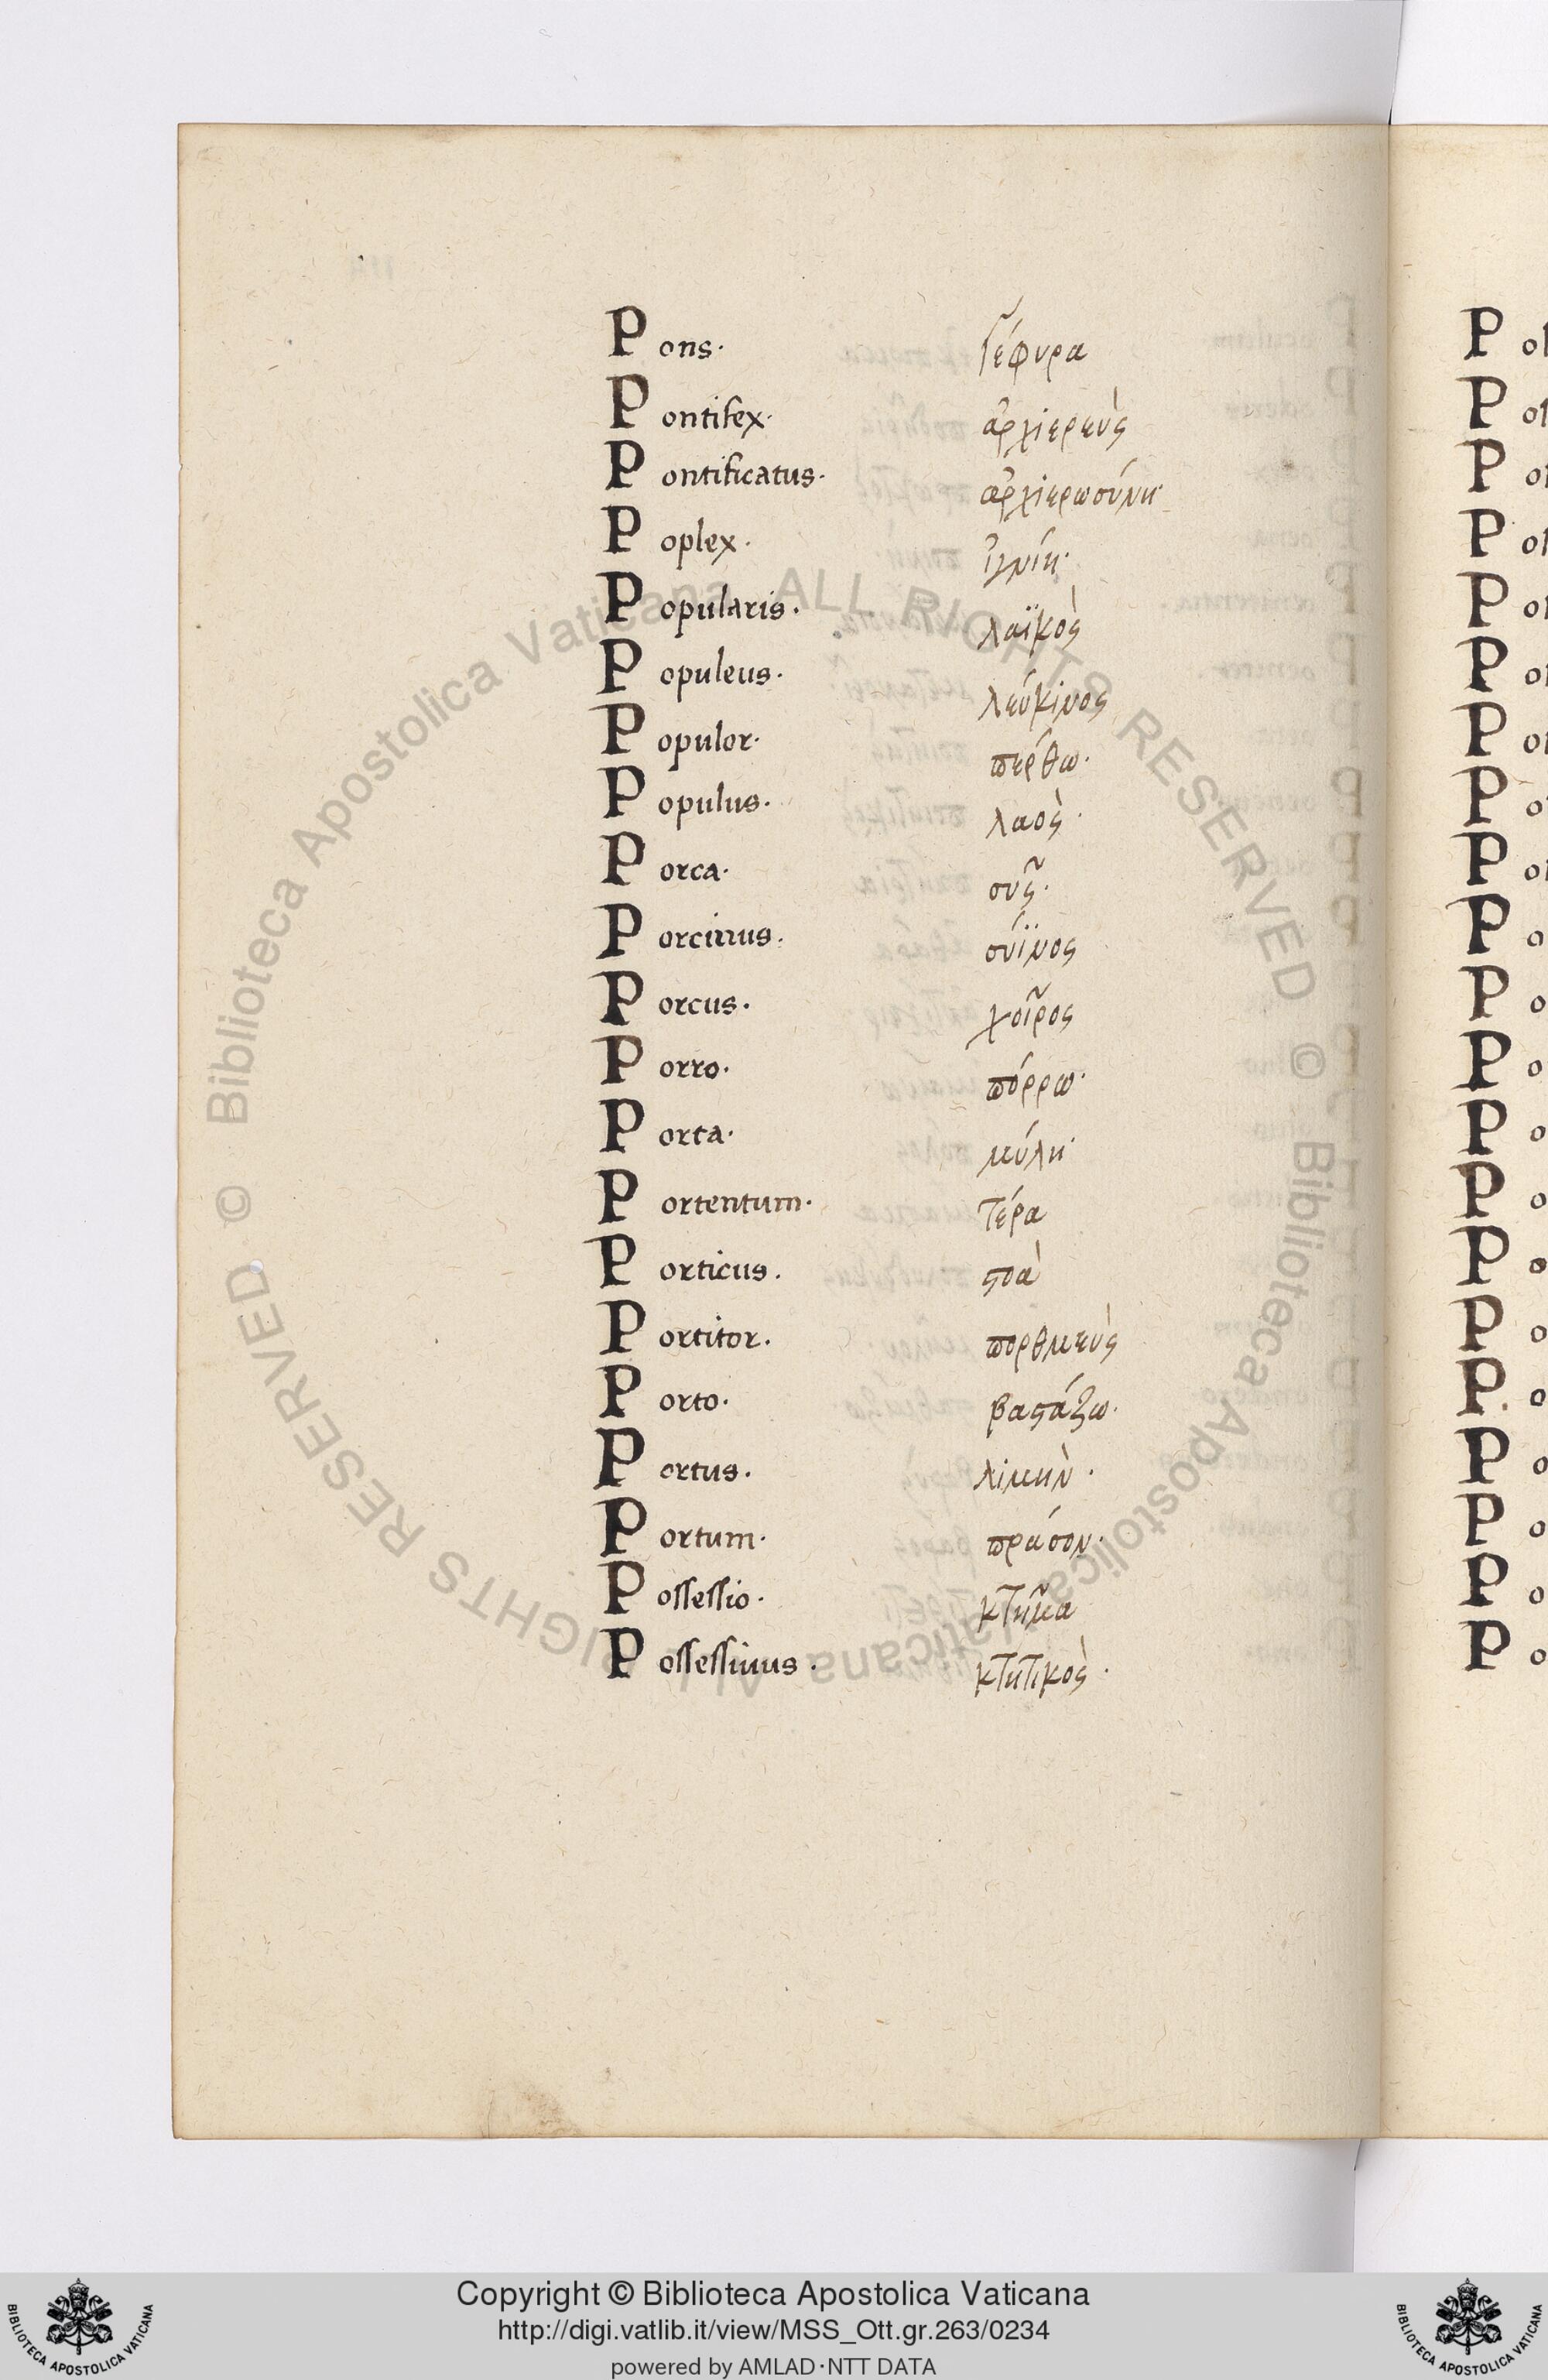 Pons· γέφυρα
Pontifex· ἀρχιερεὺς
Pontificatus· ἀρχιερωσύνη·
Poplex· ἰγνίη·
Popularis· λαϊκὸς
Populeus· λεύκινος
Populor· πέρθω·
Populus· λαὸς·
Porca· σῦς·
Porcinus· σύϊνος
Porcus· χοῖρος
Porro· πόρρω·
Porta· μύλη·
Portentum· τέρα
Porticus· ϛοὰ
Portitor· πορθμεὺς
Porto· βαϛάζω·
Portus· λιμὴν·
Portum· πράσον·
Possessio· κτῆμα
Possessiuus· κτητικὸς·
Copyright © Biblioteca Apostolica Vaticana
http://digi.vatlib.it/view/MSS_Ott.gr.263/0234
powered by AMLAD·NTT DATA
BIBLIOTECA APOSTOLICA VATICANA
BIBLIOTECA APOSTOLICA VATICANA
© Biblioteca Apostolica Vaticana ALL RIGHTS RESERVED © Biblioteca Apostolica Vaticana ALL RIGHTS RESERVED